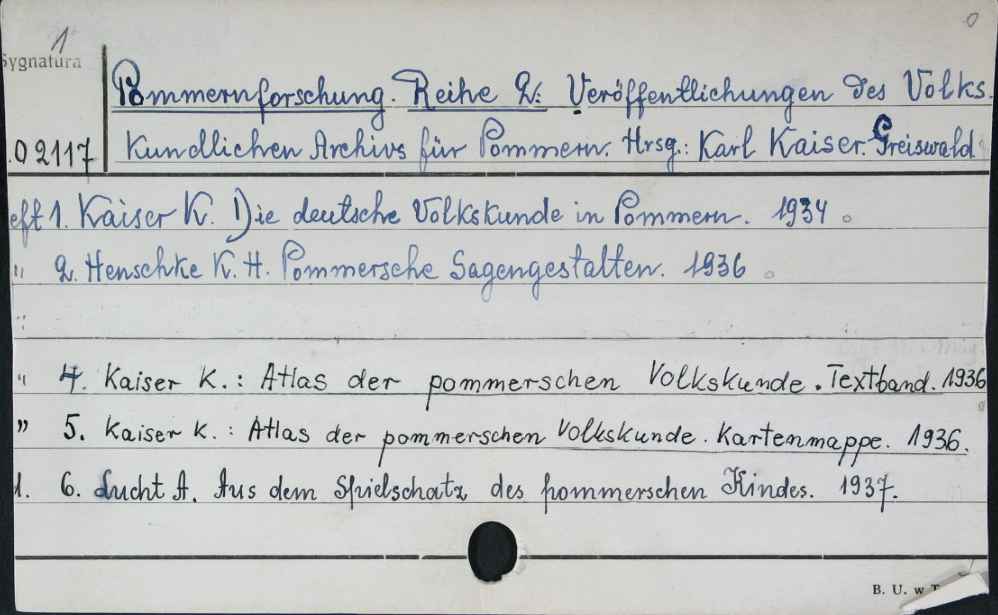 1
Sygnatura
Pommernforschung. Reihe 2: Veröffentlichungen des Volks-
02117 Kundlichen Archivs für Pommern. Hrsg.: Karl Kaiser. Greiswald
eft 1. Kaiser K. Die deutsche Volkskunde in Pommern. 1934
" 2. Henschke K. H. Pommersche Sagengestalten. 1936
" 4. Kaiser K.: Atlas der pommerschen Volkskunde. Textband. 1936
" 5. Kaiser K.: Atlas der pommerschen Volkskunde. Kartenmappe. 1936.
1. 6. Lucht A. Aus dem Spielschatz des pommerschen Kindes. 1937.
B. U. w T